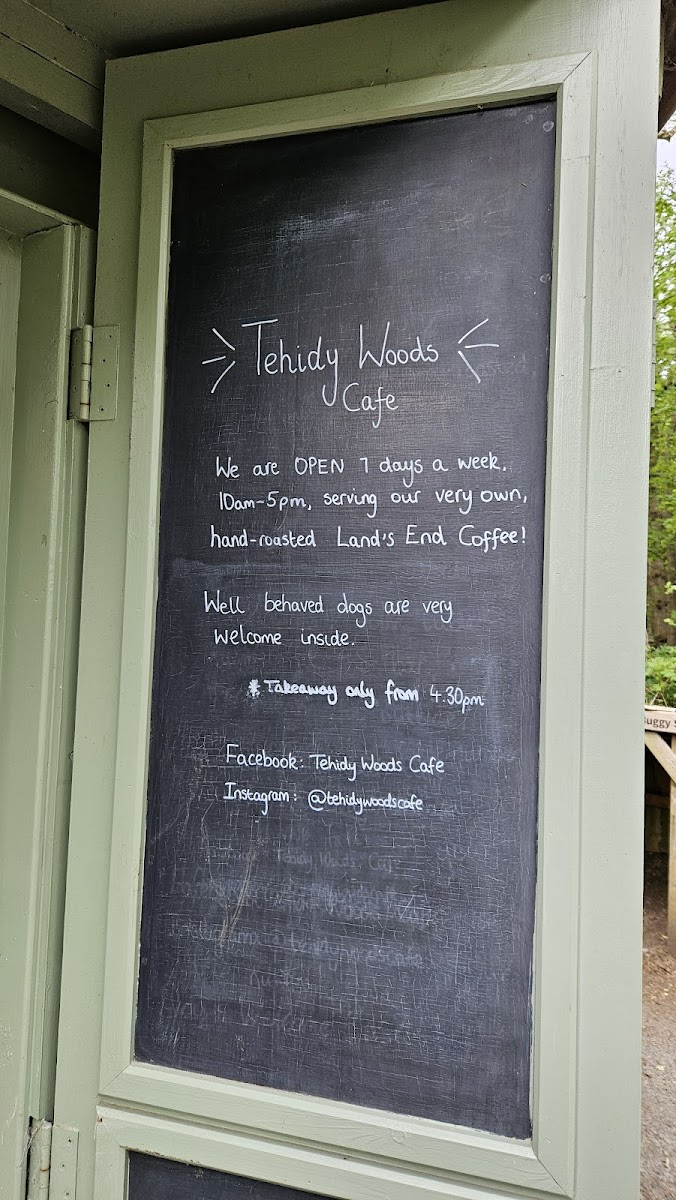 Tehidy Woods
Cafe
We are OPEN 7 days a week.
10am-5pm, serving our very own,
hand-roasted Land's End Coffee!
Well behaved dogs are very
welcome inside.
* Takeaway only from 4.30pm
Facebook: Tehidy Woods Cafe
Instagram: @tehidywoodscafe
Buggy